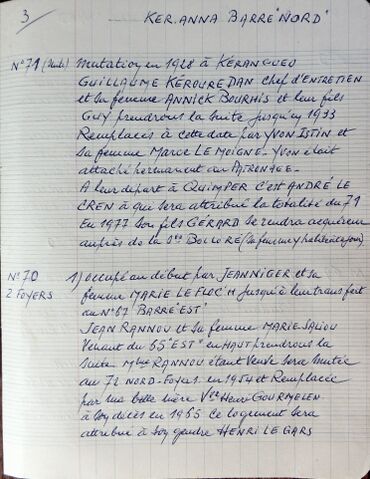 3
KER.ANNA BARRE "NORD"
N° 71 (suite) mutation en 1928 à KÉRANGUEU
GUILLAUME KÉROUREDAN chef d'ENTRETIEN
et sa femme ANNICK BOURHIS et leur fils
GUY prendrons la suite jusqu'en 1933
Remplacés à cette date par YVON ISTIN et
sa femme MARCE LE MOIGNE - YVON était
attaché permanent au PATRONAGE -
A leur départ à QUIMPER C'EST ANDRÉ LE
CREN à qui sera attribué la totalité du 71
En 1977 son fils GÉRARD se rendra acquéreur
auprès de la Sté BOLLORÉ (sa femme y habite à ce jour)
N° 70
2 FOYERS
1) occupé au début par JEAN NIGER et sa
femme MARIE LE FLOC'H jusqu'à leur transfert
au N° 67 BARRE "EST"
JEAN RANNOU et sa femme MARIE SALIOU
venant du 65 "EST" en HAUT prendrons la
suite Mme RANNOU étant veuve sera mutée
au 72 NORD - Foyer en 1954 et Remplacée
par ma belle mère Vve Henri GOURMELEN
à son décès en 1965 ce logement sera
attribué à son gendre HENRI LE GARS